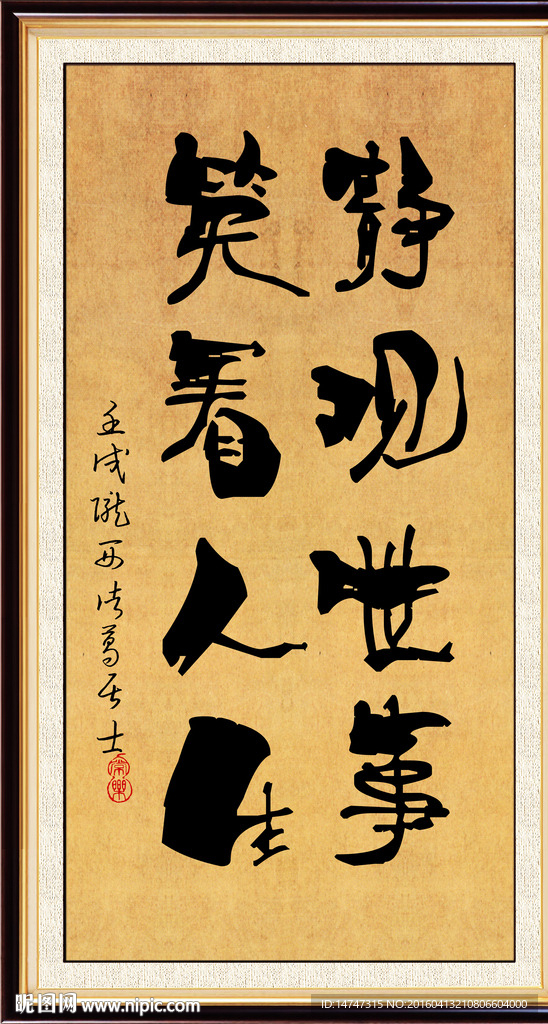 静观世事
笑看人生
壬戌陇西诸葛居士
常乐
昵图网 www.nipic.com
ID:14747315 NO:20160413210806604000